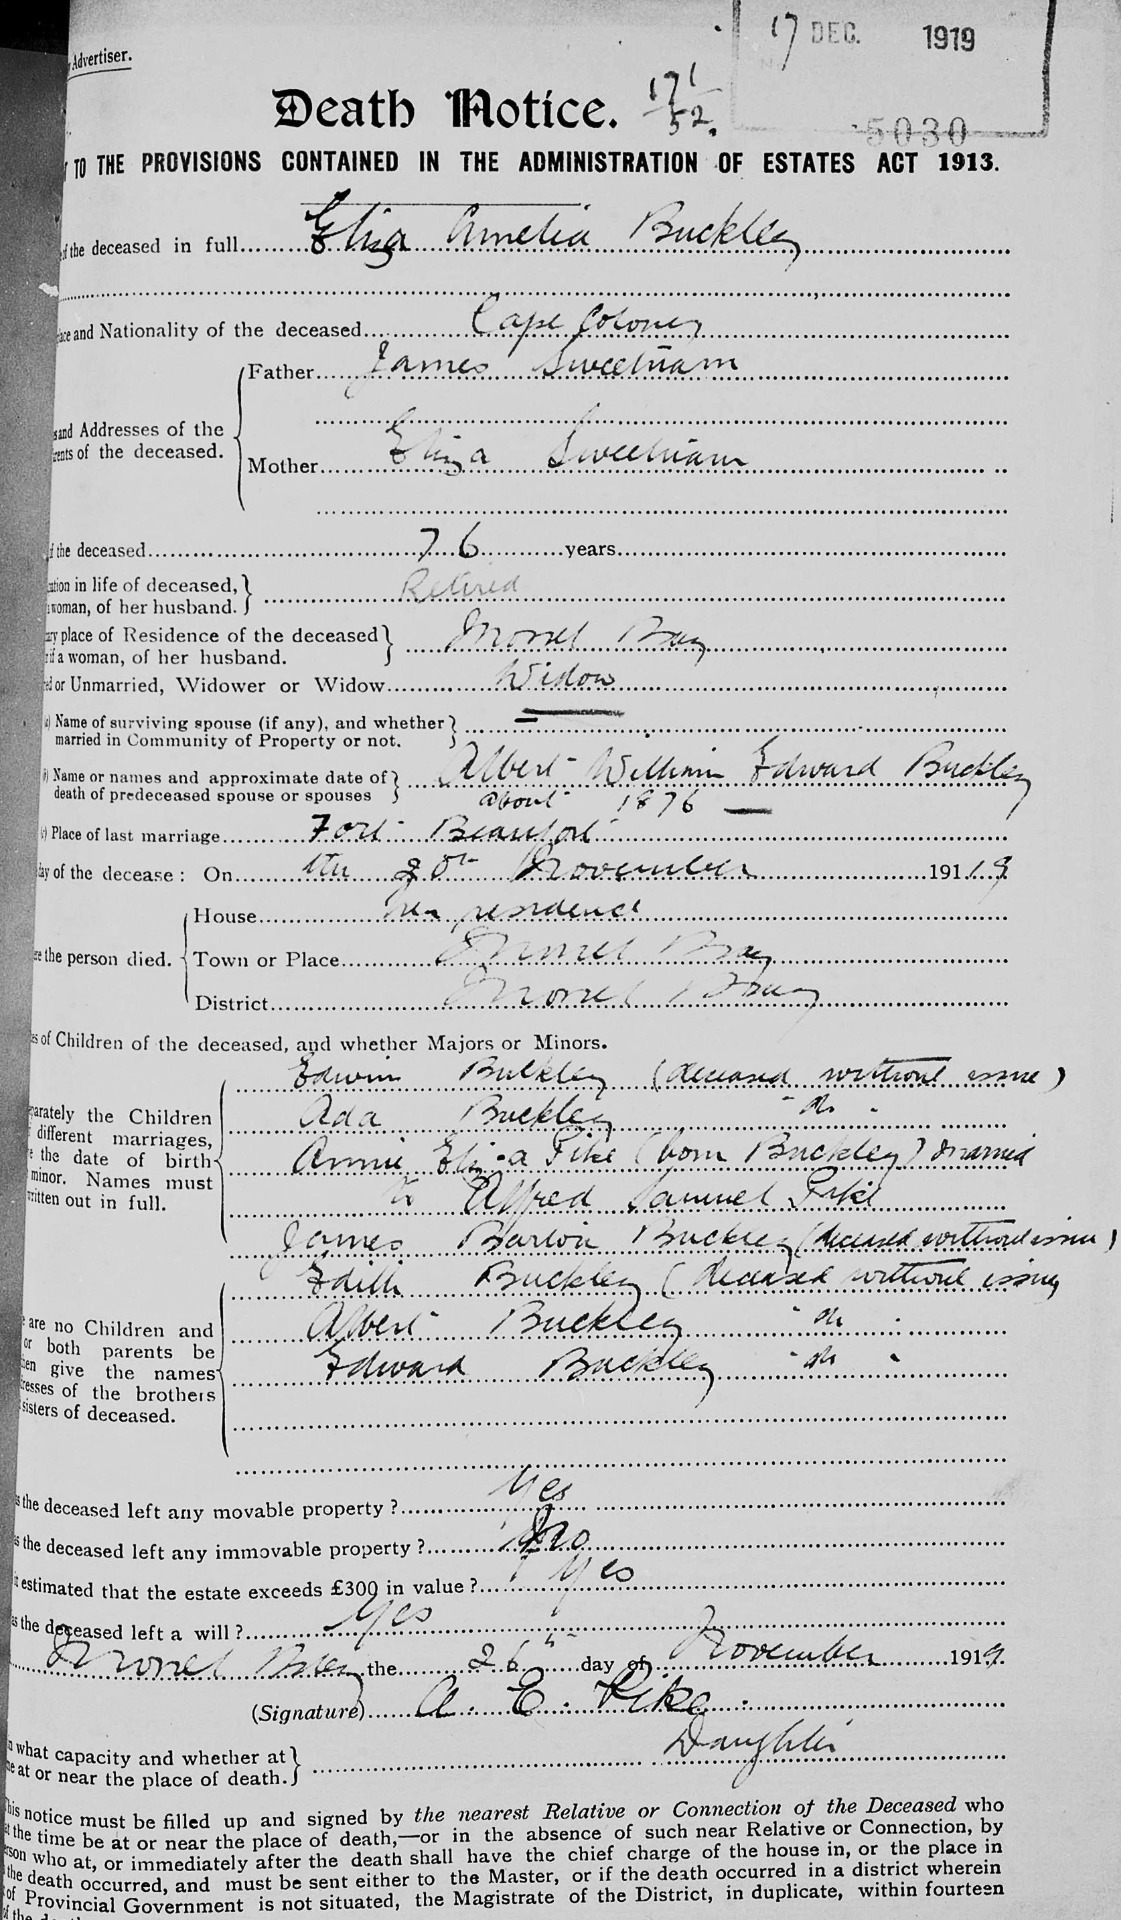 Advertiser.
17 DEC. 1919
Death Notice.
171
52.
5030
TO THE PROVISIONS CONTAINED IN THE ADMINISTRATION OF ESTATES ACT 1913.
of the deceased in full Eliza Amelia Buckley
and Nationality of the deceased Cape Colony
Father James Sweetnam
and Addresses of the
of the deceased.
Mother Eliza Sweetnam
the deceased 76 years
in life of deceased,
woman, of her husband.
Retired
place of Residence of the deceased
if a woman, of her husband.
Mossel Bay
or Unmarried, Widower or Widow Widow
Name of surviving spouse (if any), and whether
married in Community of Property or not.
Name or names and approximate date of
death of predeceased spouse or spouses
Albert William Edward Buckley
about 1876
Place of last marriage Fort Beaufort
day of the decease: On the 20th November 19119
House her residence
the person died. Town or Place Mossel Bay
District Mossel Bay
of Children of the deceased, and whether Majors or Minors.
Edwin Buckley (deceased without issue)
Ada Buckley " do "
the Children
different marriages,
the date of birth
minor. Names must
out in full.
Annie Eliza Pike (born Buckley) married
to Alfred Samuel Pike
James Barton Buckley (deceased without issue)
Edith Buckley (deceased without issue)
Albert Buckley " do "
Edward Buckley " do "
are no Children and
or both parents be
give the names
of the brothers
sisters of deceased.
the deceased left any movable property? Yes
the deceased left any immovable property? No
estimated that the estate exceeds £300 in value? Yes
the deceased left a will? Yes
Mossel Bay the 26th day of November 1919.
(Signature) A. E. Pike.
Daughter
what capacity and whether at
at or near the place of death.
This notice must be filled up and signed by the nearest Relative or Connection of the Deceased who
the time be at or near the place of death,—or in the absence of such near Relative or Connection, by
who at, or immediately after the death shall have the chief charge of the house in, or the place in
the death occurred, and must be sent either to the Master, or if the death occurred in a district wherein
of Provincial Government is not situated, the Magistrate of the District, in duplicate, within fourteen